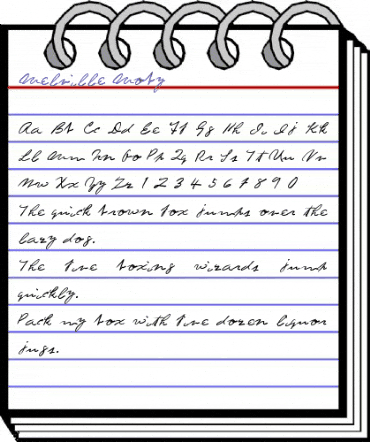 Melville Moty
Aa Bb Cc Dd Ee Ff Gg Hh Ii Jj Kk
Ll Mm Nn Oo Pp Qq Rr Ss Tt Uu Vv
Ww Xx Yy Zz 1 2 3 4 5 6 7 8 9 0
The quick brown fox jumps over the
lazy dog.
The five boxing wizards jump
quickly.
Pack my box with five dozen liquor
jugs.